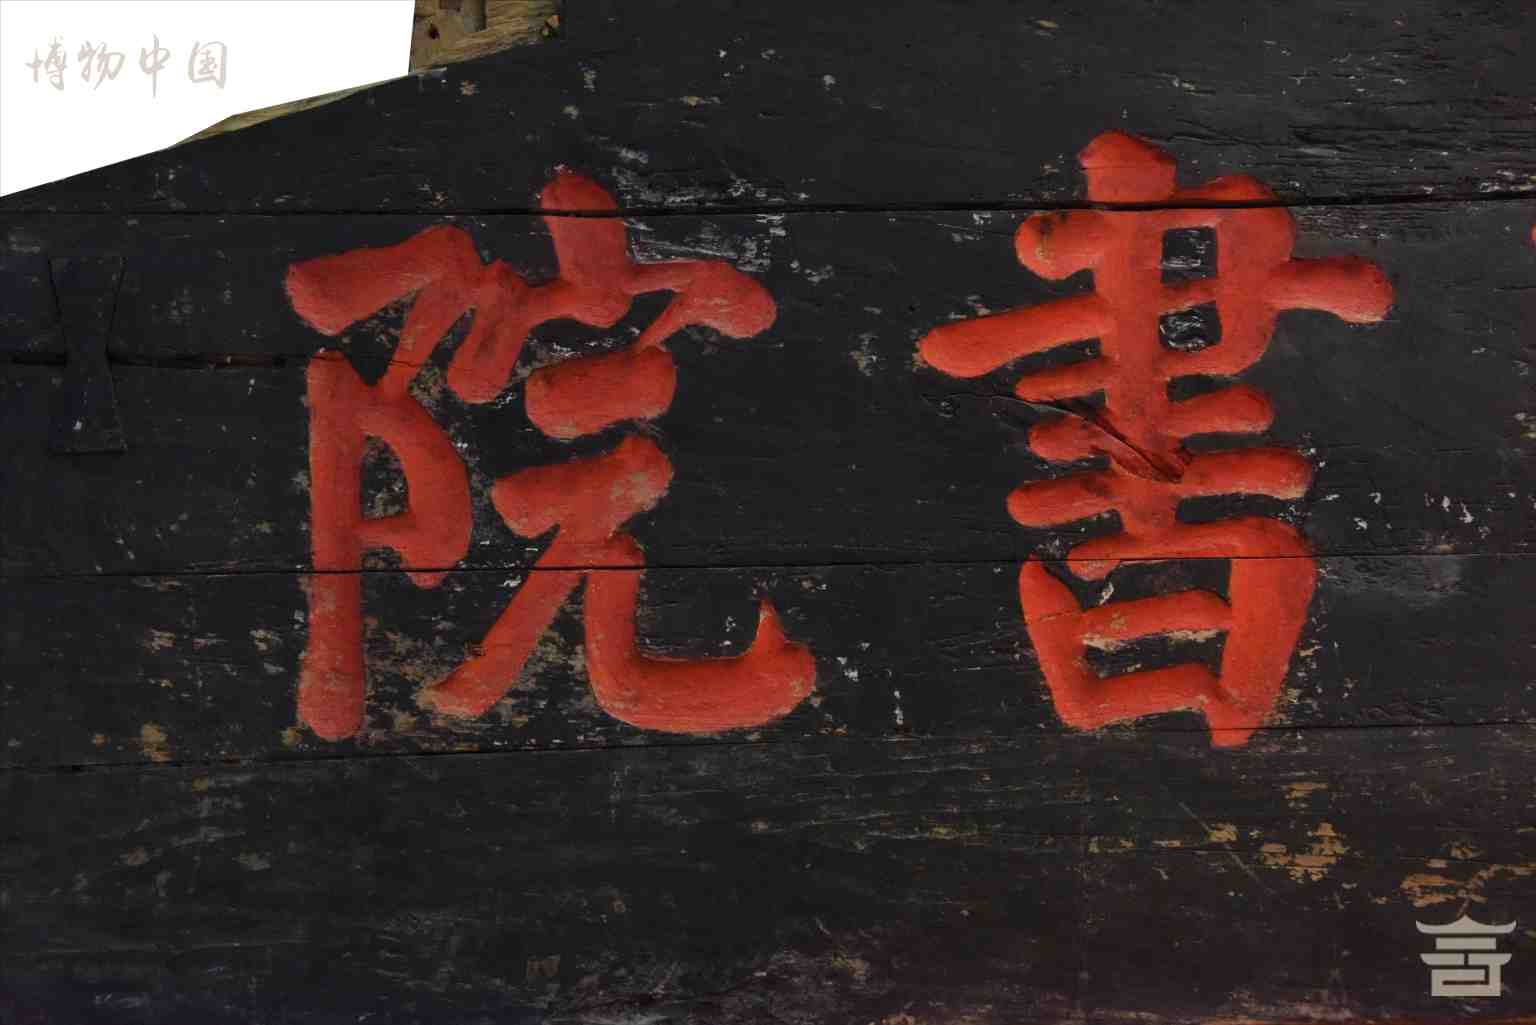 博物中国
書院